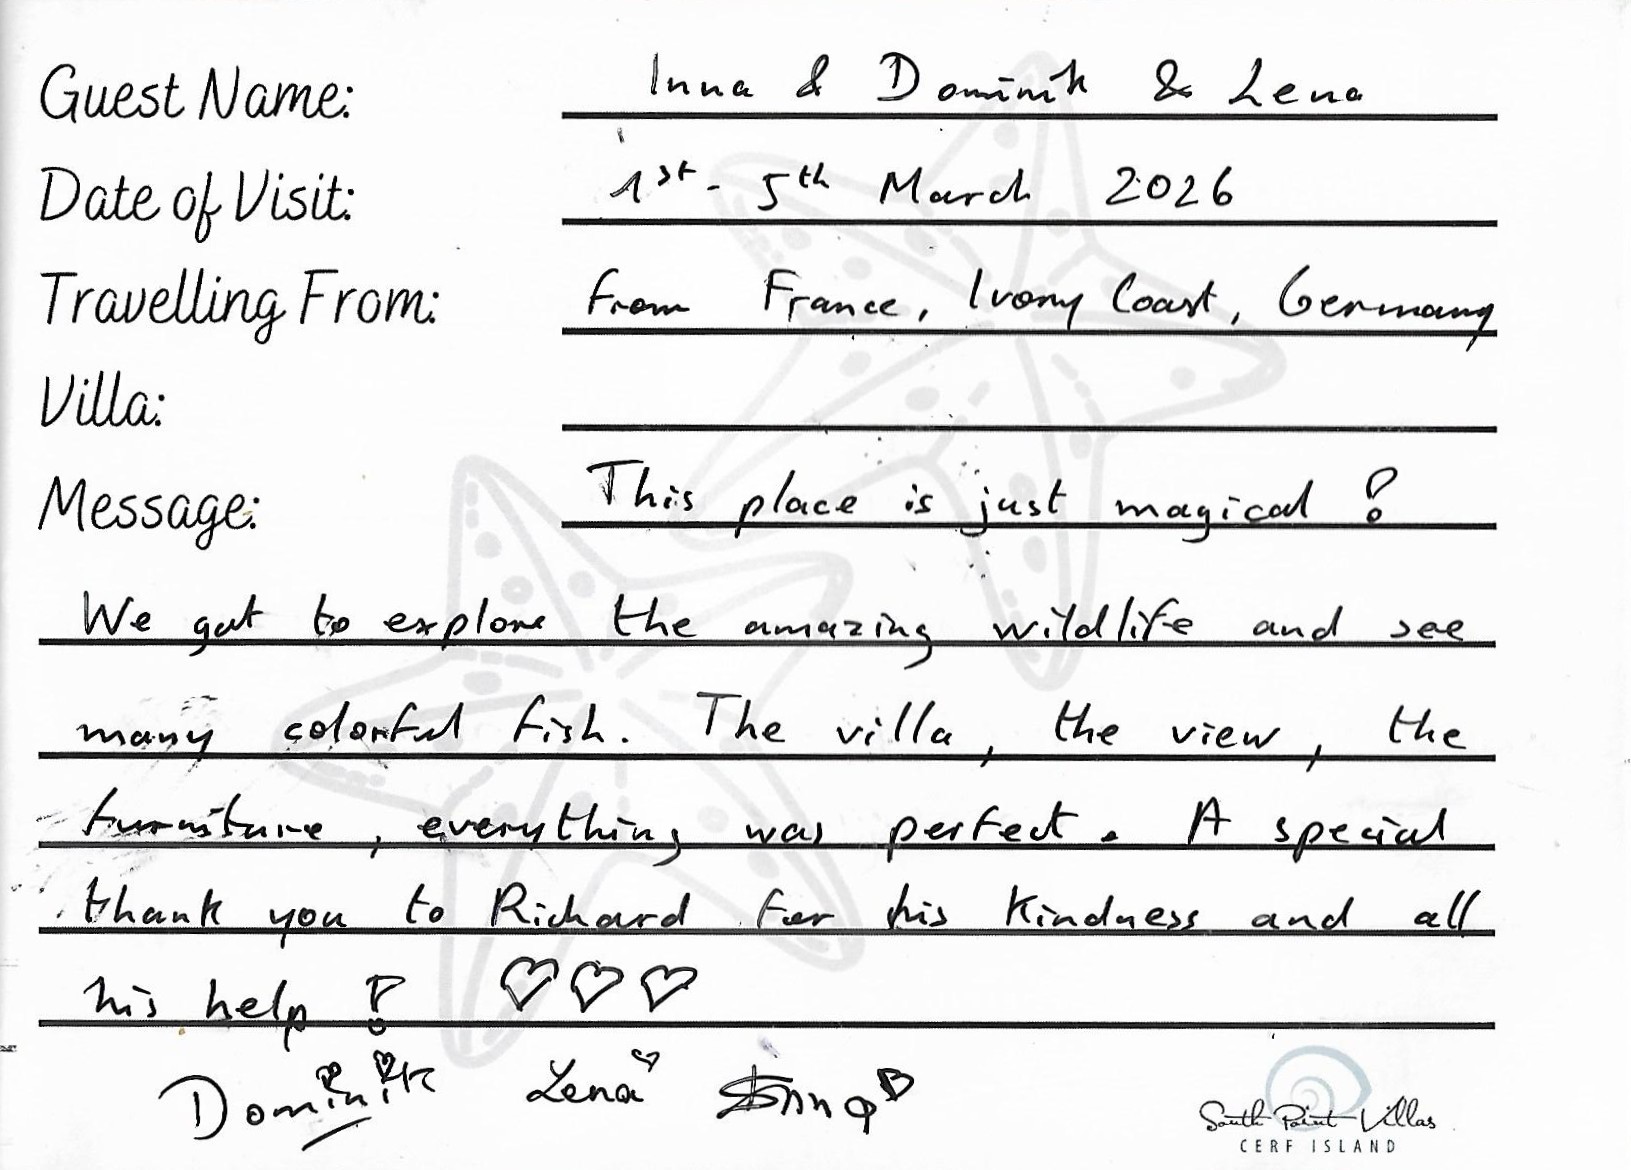 Guest Name: Inna & Dominik & Lena
Date of Visit: 1st - 5th March 2026
Travelling From: from France, Ivory Coast, Germany
Villa:
Message: This place is just magical !
We got to explore the amazing wildlife and see
many colorful fish. The villa, the view, the
furniture, everything was perfect. A special
thank you to Richard for his kindness and all
his help ! ♡♡♡
Dominik Lena Inna
South Point Villas
CERF ISLAND